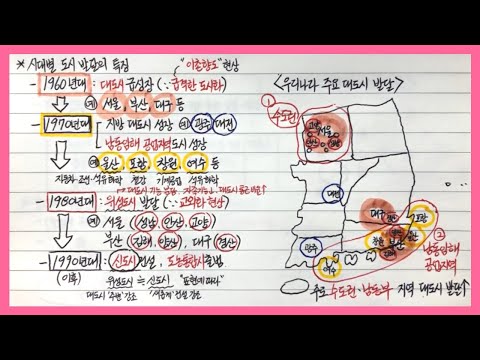 * 시대별 도시 발달의 특징
"이촌향도" 현상
- 1960년대 : 대도시 급성장 (∵급격한 도시화)
예) 서울, 부산, 대구 등
- 1970년대 : 지방 대도시 성장 예) 광주, 대전
남동임해 공업지역 도시 성장
예) 울산, 포항, 창원, 여수 등
자동차 조선 석유화학 철강 기계공업 석유화학
- 1980년대 : 위성도시 발달 (∵교외화 현상)
예) 서울 (성남, 안산, 고양)
부산 (김해, 양산), 대구 (경산)
- 1990년대 : 신도시 건설, 도농통합시 출범
(이후)
위성도시 ≒ 신도시 "표현에 따라"
대도시 '주변' 강조 '새롭게' 건설 강조
<우리나라 주요 대도시 발달>
① 수도권
서울
대전
대구
포항
울산
부산
창원
광주
여수
② 남동임해
공업지역
주로 수도권·남동부 지역 대도시 발달↑